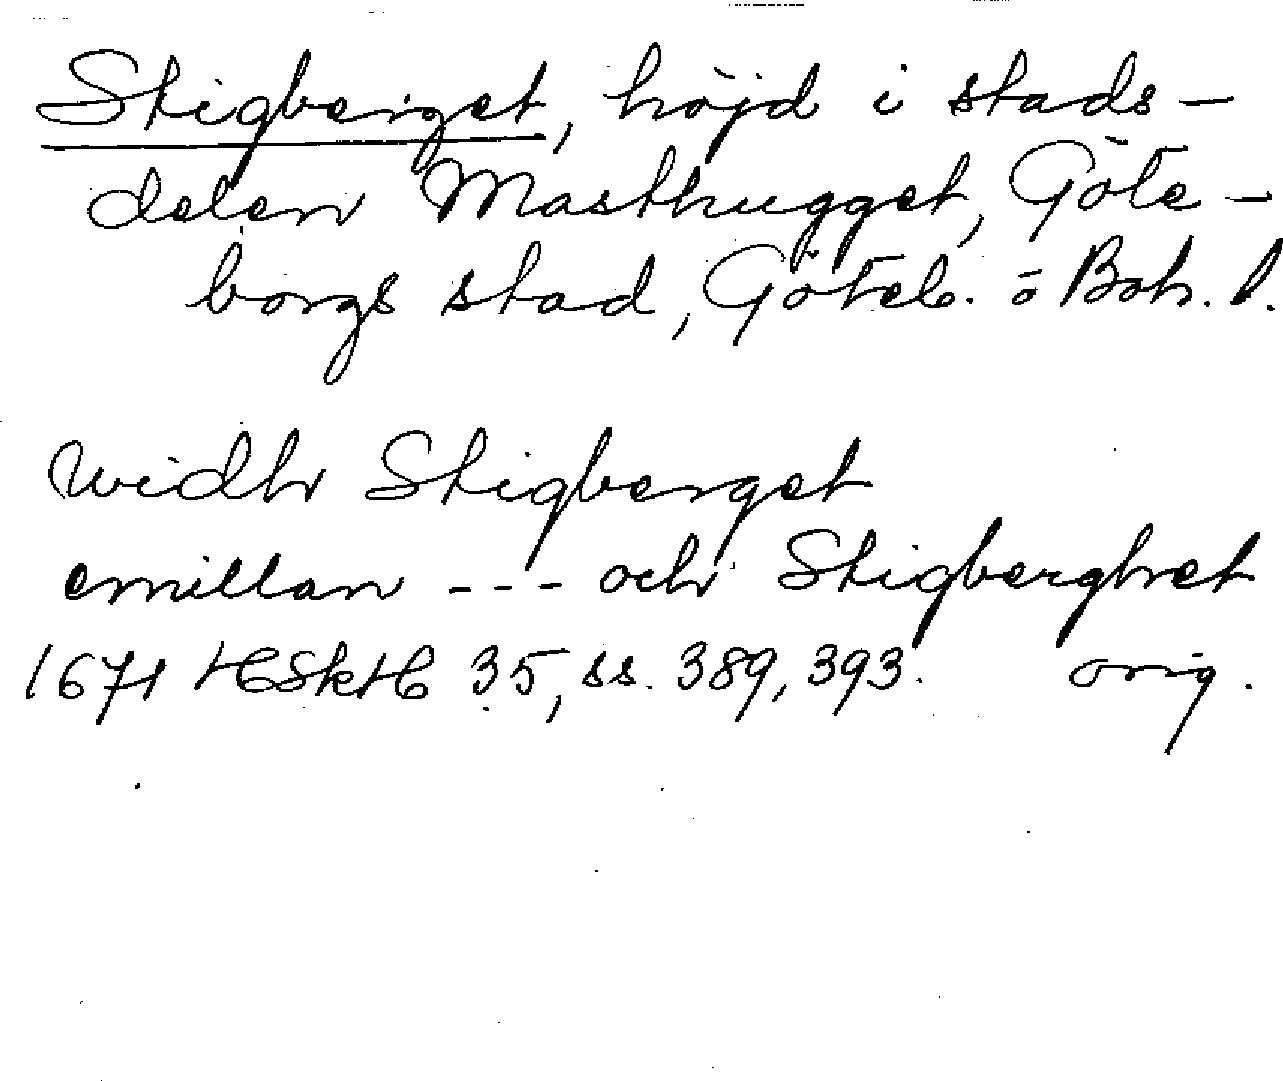 Stigberget, höjd i stads-
delen Masthugget, Göte-
borgs stad, Göteb. o Boh. l.
widh Stigberget
emillan --- och Stigberghet
1671 HSH 35, ss. 389, 393. orig.